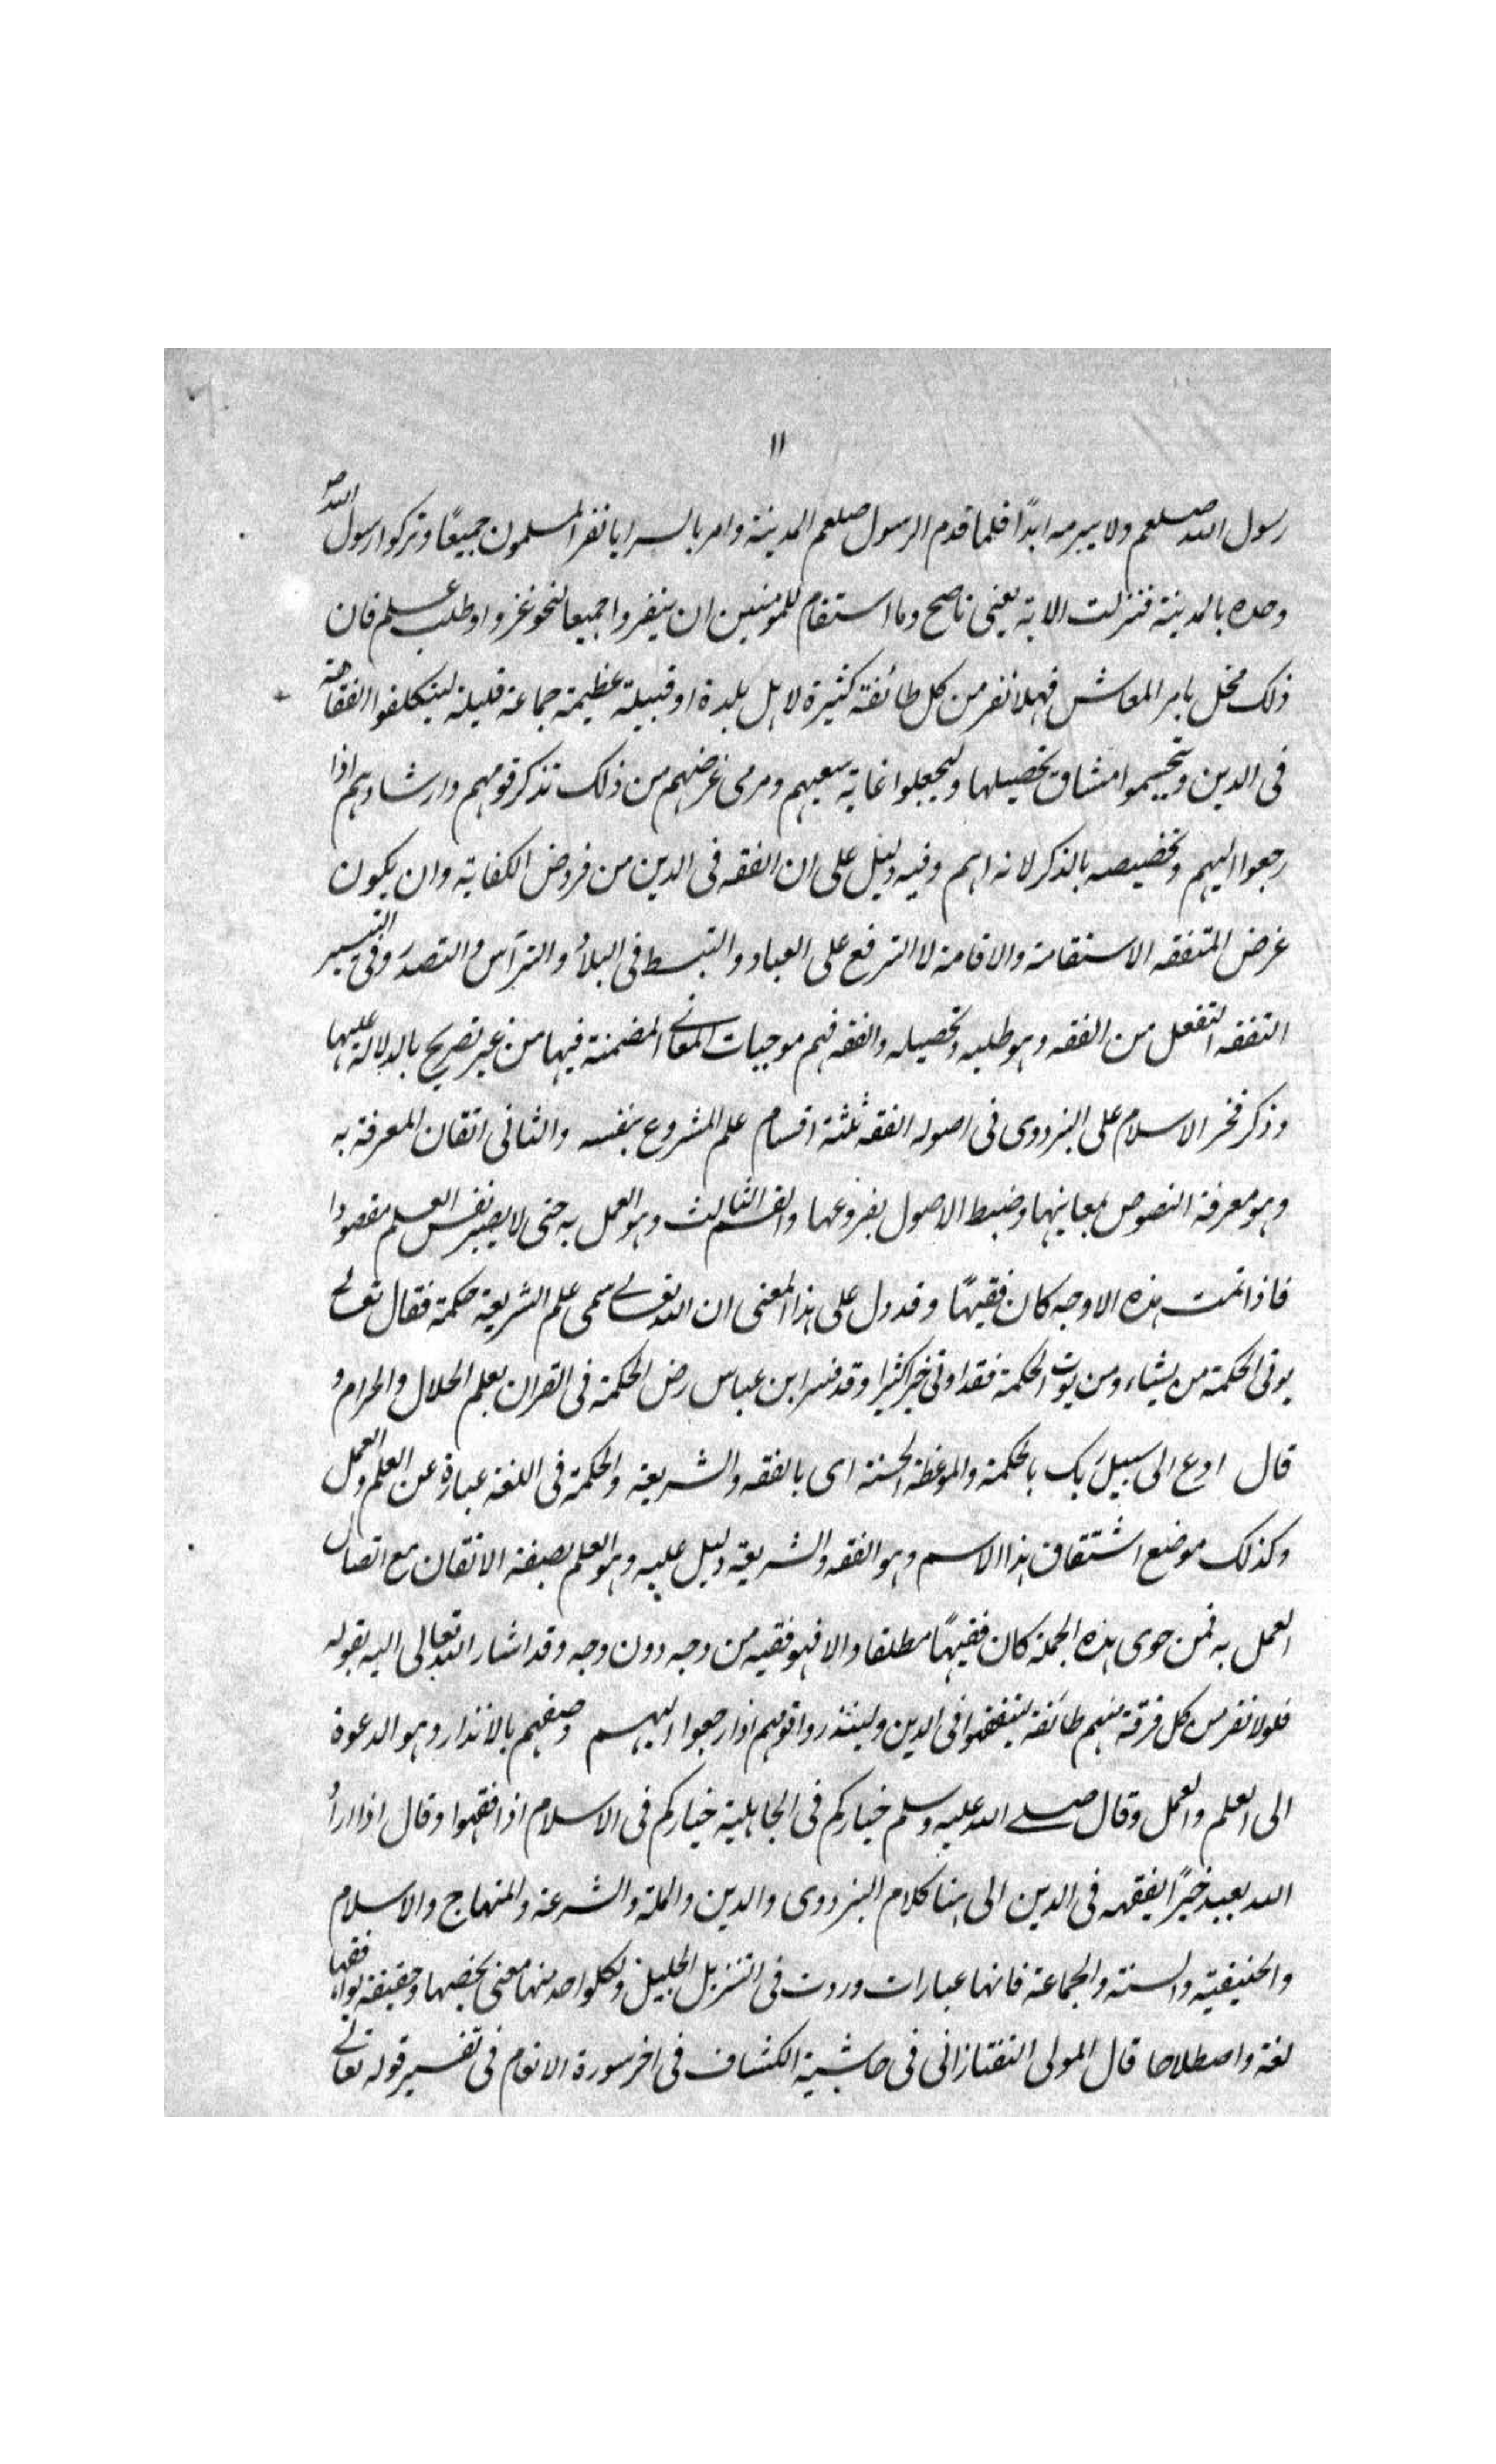 ١١
رسول الله صلعم ولا سرية ابدًا فلما قدم الرسول صلعم المدينة وامر بالسرايا نفر المسلمون جميعًا وتركوا رسول الله ص
وحده بالمدينة فنزلت الاية يعنى ما صح وما استقام للمومنين ان ينفروا جميعا لنحو غزو او طلب علم فان
ذلك مخل بامر المعاش فهلا نفر من كل طائفة كثيرة لاهل بلدة او قبيلة عظيمة جماعة قليلة ليتكلفوا الفقاهة
فى الدين ويتجشموا مشاق تحصيلها وليجعلوا غاية سعيهم ومرمى غرضهم من ذلك تذكر قومهم وارشادهم اذا
رجعوا اليهم وتخصيصه بالذكر لانه اهم وفيه دليل على ان الفقه فى الدين من فروض الكفاية وان يكون
غرض المتفقه الاستقامة والاقامة لا الترفع على العباد والتبسط فى البلاد والترآس والتصدر وفى التيسير
التفقه التفعل من الفقه وهو طلبه وتحصيله والفقه فهم موجبات المعانى المضمنة فيها من غير تصريح بالدلالة عليها
وذكر فخر الاسلام على البزدوى فى اصوله الفقه ثلثة اقسام علم المشروع بنفسه والثانى اتقان المعرفة به
وهو معرفة النصوص بمعانيها وضبط الاصول بفروعها والقسم الثالث وهو العمل به حتى لا يصير نفس العلم مقصودا
فاذا تمت هذه الاوجه كان فقيهًا وقد دل على هذا المعنى ان الله تعالى سمى علم الشريعة حكمة فقال تعالى
يوتى الحكمة من يشاء ومن يوت الحكمة فقد اوتى خيرا كثيرا وقد فسر ابن عباس رض الحكمة فى القران بعلم الحلال والحرام و
قال ادع الى سبيل ربك بالحكمة والموعظة الحسنة اى بالفقه والشريعة والحكمة فى اللغة عبارة عن العلم والعمل
وكذلك موضع اشتقاق هذا الاسم وهو الفقه والشريعة دليل عليه وهو العلم بصفة الاتقان مع اتصال
العمل به فمن حوى هذه الجملة كان فقيهًا مطلقا والا فهو فقيه من وجه دون وجه وقد اشار الله تعالى اليه بقوله
فلولا نفر من كل فرقة منهم طائفة ليتفقهوا فى الدين ولينذروا قومهم اذا رجعوا اليهم وصفهم بالانذار وهو الدعوة
الى العلم والعمل وقال صلى الله عليه وسلم خياركم فى الجاهلية خياركم فى الاسلام اذا فقهوا وقال اذا اراد
الله بعبد خيرًا يفقهه فى الدين الى هنا كلام البزدوى والدين والملة والشرعة والمنهاج والاسلام
والحنيفية والسنة والجماعة فانها عبارات وردت فى التنزيل الجليل ولكل واحد منها معنى يخصها وحقيقة توافقها
لغة واصطلاحا قال المولى التفتازانى فى حاشية الكشاف فى اخر سورة الانعام فى تفسير قوله تعالى